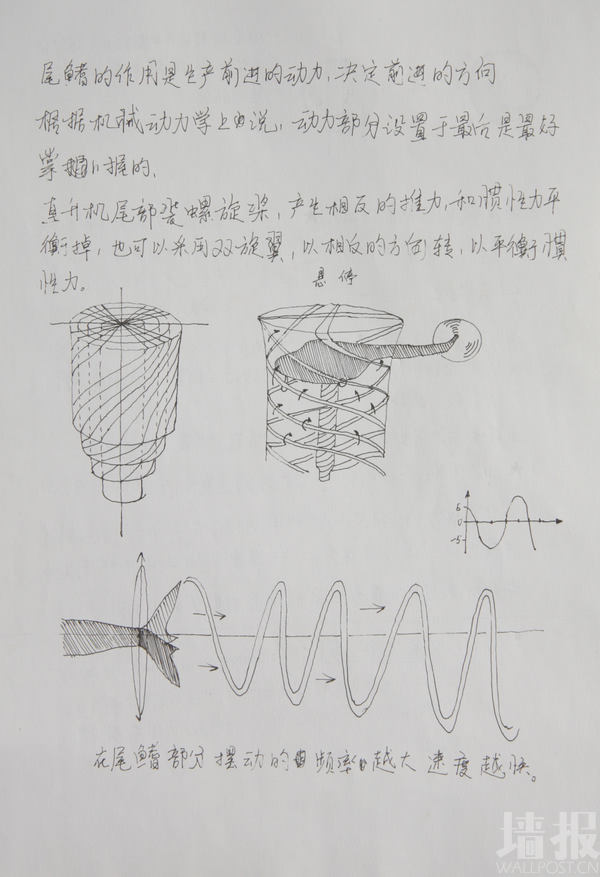 尾鳍的作用是生产前进的动力,决定前进的方向
根据机械动力学上来说,动力部分设置于最后是最好
掌握的,
直升机尾部装螺旋桨,产生相反的推力,和惯性力平
衡掉,也可以采用双旋翼,以相反的方向转,以平衡惯
性力。
悬停
5
0
-5
在尾鳍部分摆动的频率越大速度越快。
墙报
WALLPOST.CN